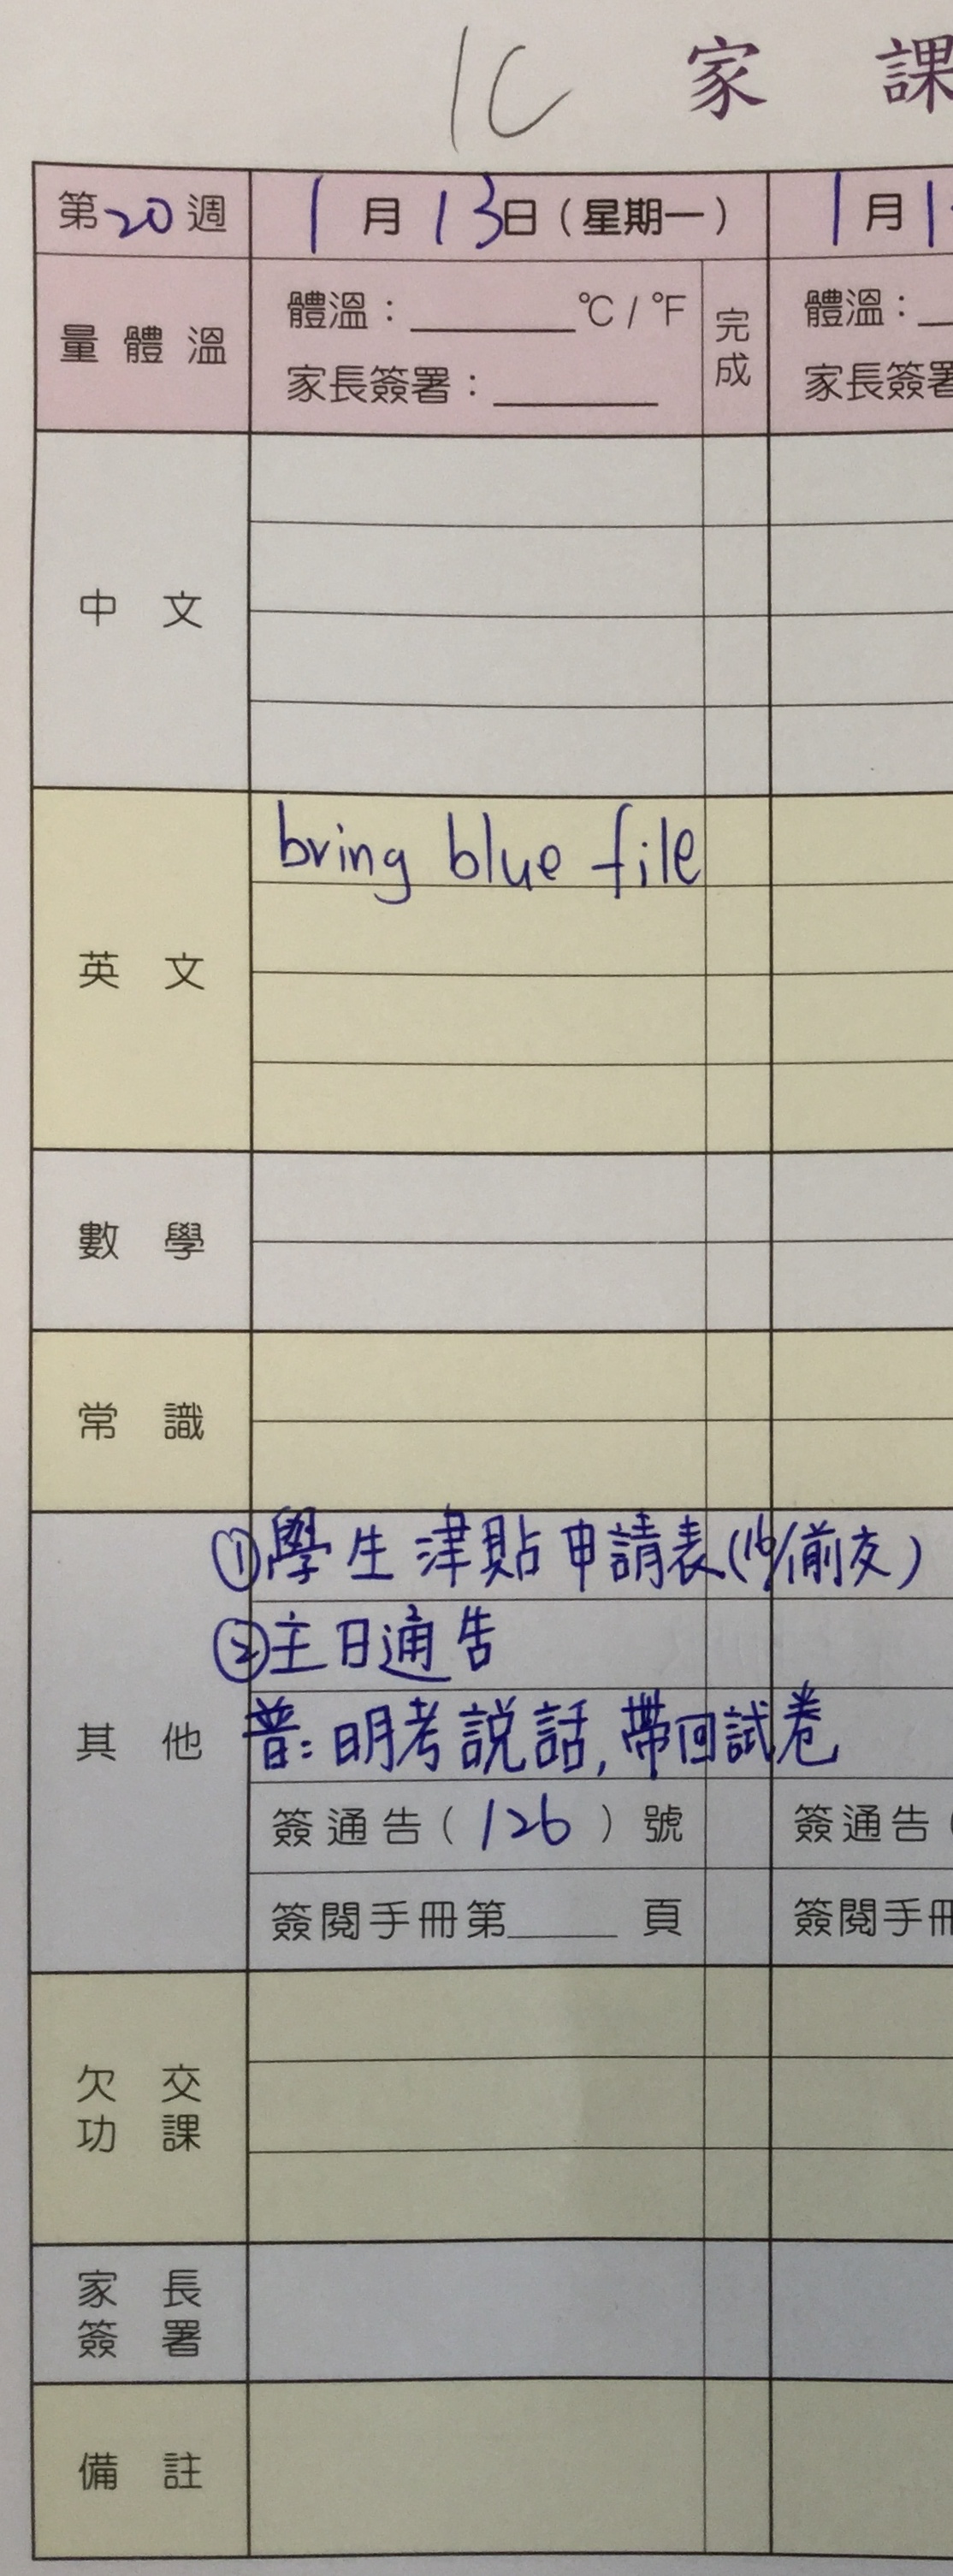 1C 家 課
第20週 1月13日(星期一) 1月1
量體溫 體溫:______℃/℉ 完成 體溫:
家長簽署:______ 家長簽署
中文
英文 bring blue file
數學
常識
其他 ①學生津貼申請表(16/1前交)
②主日通告
普:明考説話,帶回試卷
簽通告(126)號 簽通告(
簽閱手冊第____頁 簽閱手冊
欠交功課
家長簽署
備註